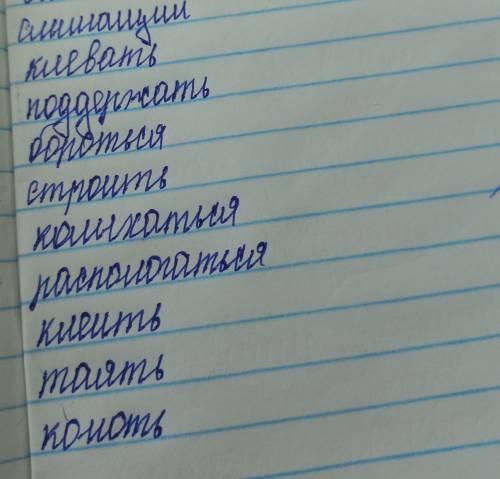 слышащий
клевать
поддержать
бороться
строить
колыхаться
распологаться
клеить
таять
колоть